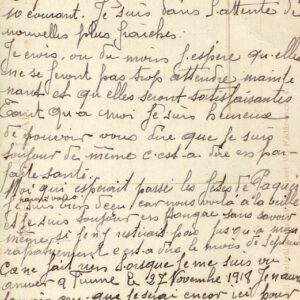 10 courant. Je suis dans l'attente de
nouvelles plus fraiches.
Je crois, ou du moins j'espère qu'elles
ne se feront pas trop attendre, mainte
nant et qu'elles seront satisfaisantes
Tant qu'a moi je suis heureux
de pouvoir vous dire que je suis
toujour de même c'est-a dire en par-
faite sante.
Moi qui esperait passer les fetes de Paques
parmi vous
suis bien deçu car nous voila a la veille
et je suis toujour en
sans savoir
même si je n'y resterait pas jusqu'a mon
rapatriement c'est-a dire le mois de Septem
Ca ne fait rien lorsque je me suis vu
arriver a Tunne le 27 Novembre 1918 Je n'aura
que je serai encor ici pour